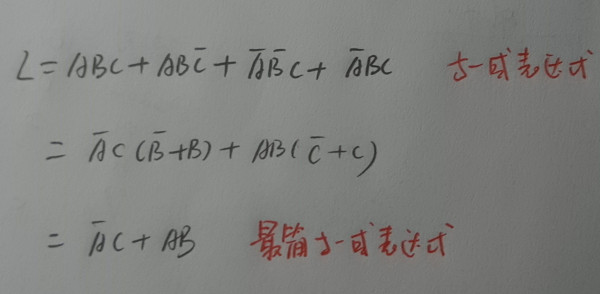 L = ABC + ABC̄ + ĀB̄C + ĀBC 与一或表达式
= ĀC(B̄+B) + AB(C̄+C)
= ĀC + AB 最简与一或表达式